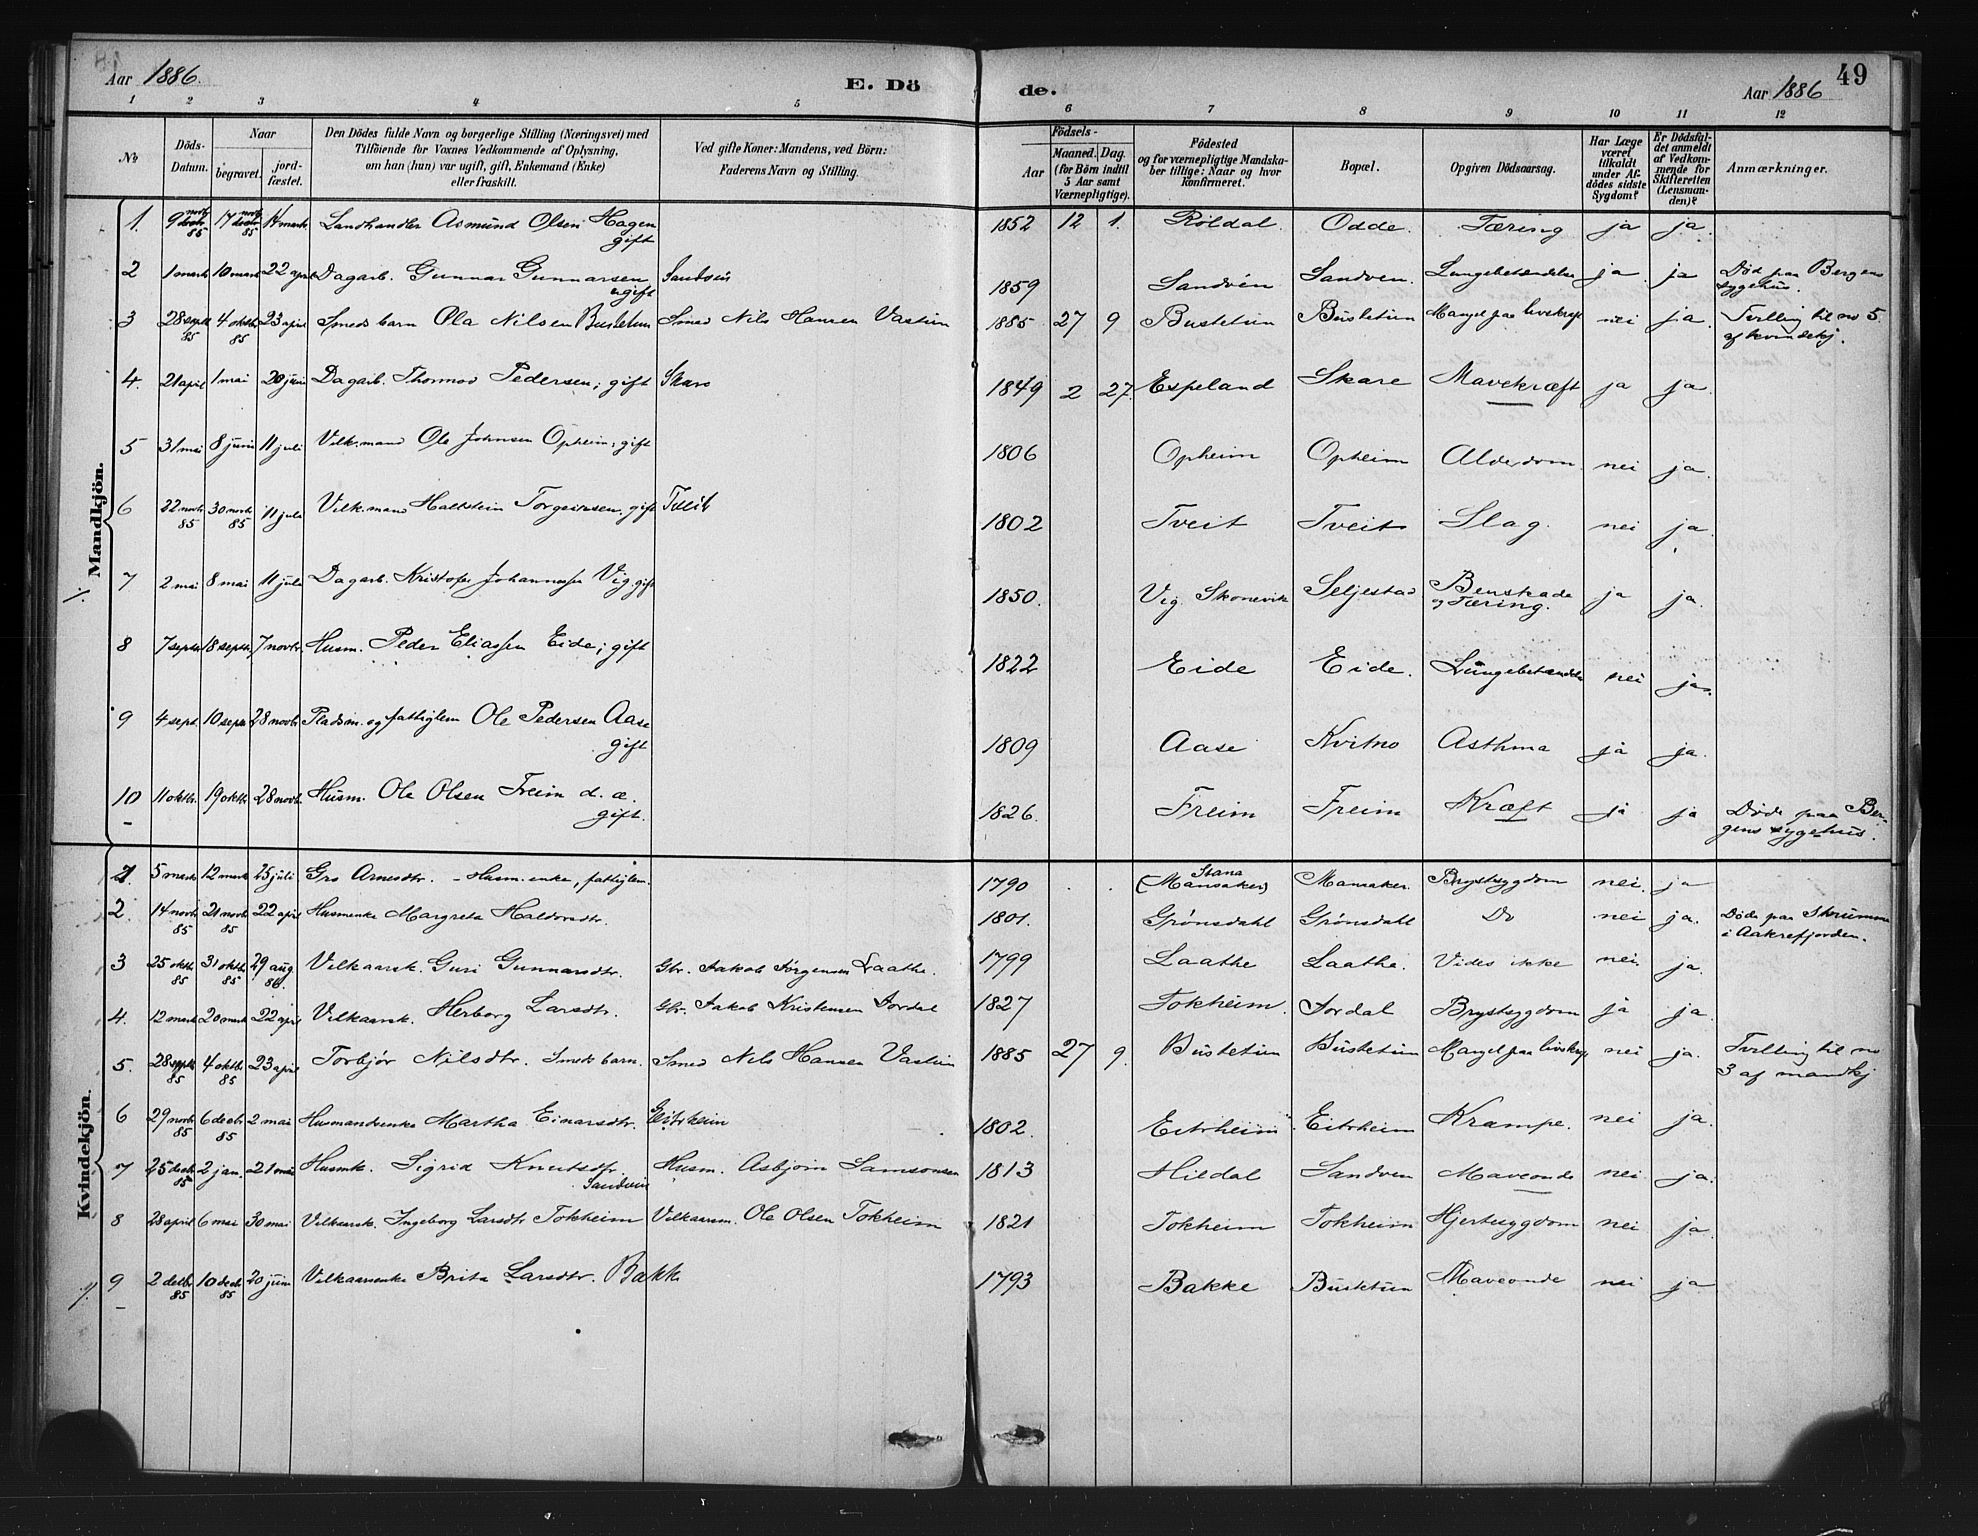 Aar 1886. E. Dö de. Aar 1886 49
1 2 3 4 5 6 7 8 9 10 11 12
No
Döds-Datum.
Naar
begravet.
jordfæstet.
Den Dödes fulde Navn og borgerlige Stilling (Næringsvei) med
Tilföiende for Voxnes Vedkommende af Oplysning,
om han (hun) var ugift, gift, Enkemand (Enke)
eller fraskilt.
Ved gifte Koner: Mandens, ved Börn:
Faderens Navn og Stilling.
Födsels-
Aar
Maaned. Dag.
(for Börn indtil
5 Aar samt
Værnepligtige).
Födested
og for værnepligtige Mandska-
ber tillige: Naar og hvor
konfirmeret.
Bopæl.
Opgiven Dödsaarsag.
Har Læge
været
tilkaldt
under Af-
dödes sidste
Sygdom?
Er Dödsfal-
det anmeldt
af Vedkom-
mende for
Skifteretten
(Lensman-
den)?
Anmærkninger.
Mandkjön.
1. 9 novbr 85 17 novbr 85 14 mark Landhandler Asmund Olsen Hagen gift 1852 12 1. Röldal. Odde. Tæring ja ja.
2 1 mark 10 mark 22 april Dagarb. Gunnar Gunnarsen ugift Sandven 1859 Sandven Sandven. Lungebetændelse ja ja Död paa Bergens sygehus.
3 28 septb 85 4 oktbr 85 23 april Smeds barn Ola Nilsen Bustetun Smed Nils Hansen Vastun 1885 27 9 Bustetun Bustetun Mangel paa livskraft nei ja. Tvilling til no 5 af kvindekj.
4. 21 april 1 mai 20 juni Dagarb. Thormod Pedersen; gift Skare 1849 2 27. Espeland Skare Mavekræft ja ja
5 31 mai 8 juni 11 juli Vilk.mand Ole Johnsen Opheim; gift 1806 Opheim Opheim Alderdom. nei ja.
6 22 novbr 85 30 novbr 85 11 juli Vilk.mand Haldstein Torgeirsen, gift Tveit 1802 Tveit Tveit Slag. nei ja.
7 2 mai 8 mai 11 juli Dagarb. Kristofer Johannessen Vig, gift 1850. Vig. Skonevik Seljestad Benskade og Tæring. ja ja.
8 7 septr 18 septr 7 novbr. Husm. Peder Eliassen Eide; gift 1822 Eide Eide. Lungebetændelse nei ja.
9 4 sept. 10 septr 28 novbr. Pladsm. og fattiglem Ole Pedersen Aase gift 1809 Aase Kvitno Asthma ja ja.
10 11 oktbr. 19 oktbr. 28 novbr. Husm. Ole Olsen Freim d. æ. gift. 1826. Freim Freim Kræft ja ja Döde paa Bergens sygehus.
Kvindekjön.
1. 5 mark 12 mark 25 juli Gro Arnesdtr. - Husm.enke, fattiglem. 1790 Stana (Mansaker) Mansaker. Brystsygdom nei. ja
2. 14 novbr 85 21 novbr 85 22 april Husmenke Margreta Haldorsdtr. 1801. Grönsdahl Grönsdahl Do nei ja. Döde paa Skrumme i Aakrefjorden.
3 25 oktbr 85 31 oktbr 85 29 aug. 86 Vilkaarsk. Guri Gunnarsdtr. Gbr. Jakob Jörgensen Laathe. 1799 Laathe Laathe. Vides ikke nei. ja.
4. 12 mark 20 mark 22 april Vilkaarsk. Herborg Larsdtr. Gbr. Jakob Kristensen Jordal 1827 Tokheim. Jordal Brystsygdom ja ja.
5. 28 septbr 85 4 oktbr 85 23 april Torbjör Nilsdtr. Smeds barn. Smed Nils Hansen Vastun 1885 27 9. Bustetun Bustetun Mangel paa livskraft nei ja. Tvilling til no 3 af mandkj
6 29 novbr 85 6 decbr 85 2 mai Husmandsenke Martha Einarsdtr. Eitrheim 1802. Eitrheim Eitrheim Krampe. nei ja.
7 25 decb 85 2 jan. 21 mai Husmk. Sigrid Knutsdtr. Sandven Husm. Asbjörn Samsonsen 1813 Hildal Sandven Maveonde nei ja.
8 28 april 6 mai 30 mai Vilkaarsk. Ingeborg Larsdtr Tokheim Vilkaarsm. Ole Olsen Tokheim 1821 Tokheim Tokheim Hjertesygdom nei ja.
9 2 decbr 85 10 decb 85 20 juni Vilkaarsenke Brita Larsdtr. Bakke 1793 Bakke Bustetun Maveonde nei ja